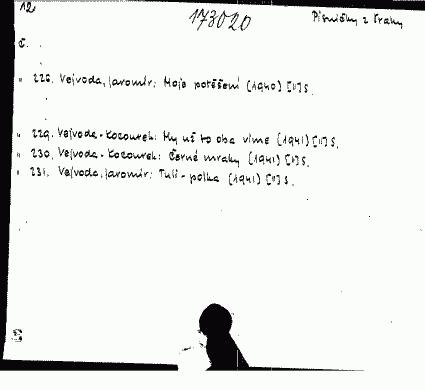 12
173020
Písničky z Prahy
č.
" 226. Vejvoda, Jaromír: Moje potěšení (1940) [1] s.
" 229. Vejvoda - Kocourek: My už to oba víme (1941) [1] s.
" 230. Vejvoda - Kocourek: Černé mraky (1941) [1] s.
" 231. Vejvoda, Jaromír: Tuli - polka (1941) [1] s.